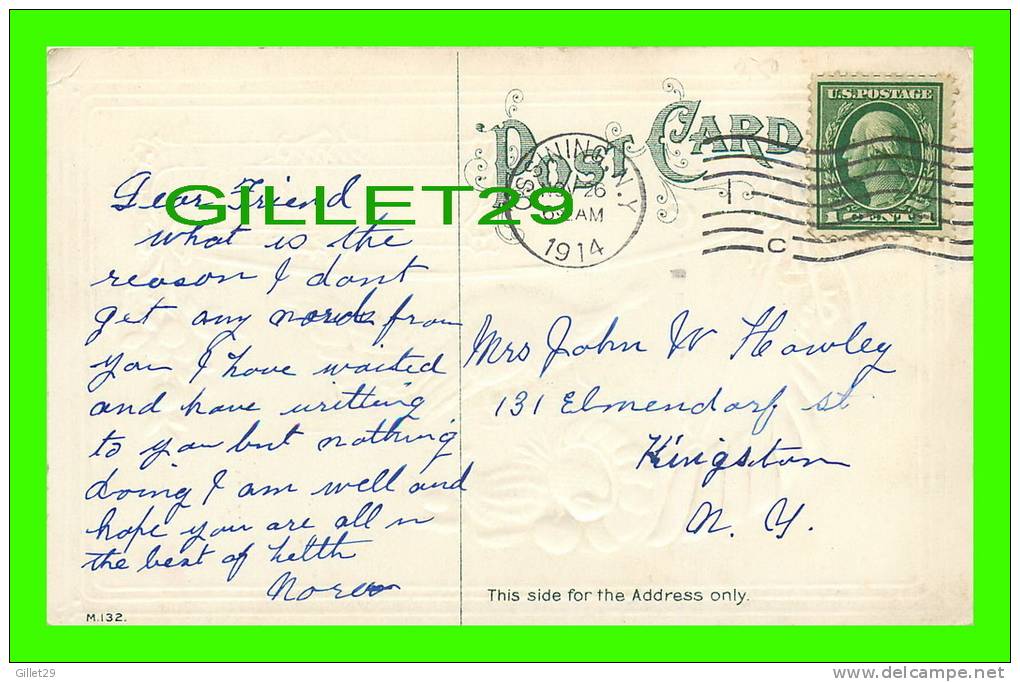 POST CARD
U.S. POSTAGE
1 CENT 1
OSSINING N.Y.
26
AM
1914
C
GILLET29
Dear Friend
what is the
reason I dont
get any words from
you I have waited
and have writting
to you but nothing
doing I am well and
hope you are all in
the best of helth
Nora
Mrs John W Hawley
131 Elmendorf st
Kingston
N. Y.
This side for the Address only.
M.132.
Gillet29
www.delcampe.net